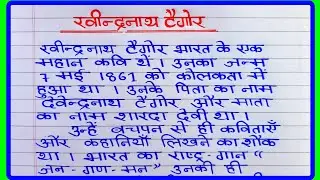 रवीन्द्रनाथ टैगोर
रवीन्द्रनाथ टैगोर भारत के एक
महान कवि थें । उनका जन्म
7 मई 1861 को कोलकता में
हुआ था । उनके पिता का नाम
देवेन्द्रनाथ टैगोर और माता
का नाम शारदा देवी था ।
उन्हें बचपन से ही कविताएँ
और कहानियाँ लिखने का शौक
था । भारत का राष्ट्र-गान "
जन-गण-मन" उनकी ही